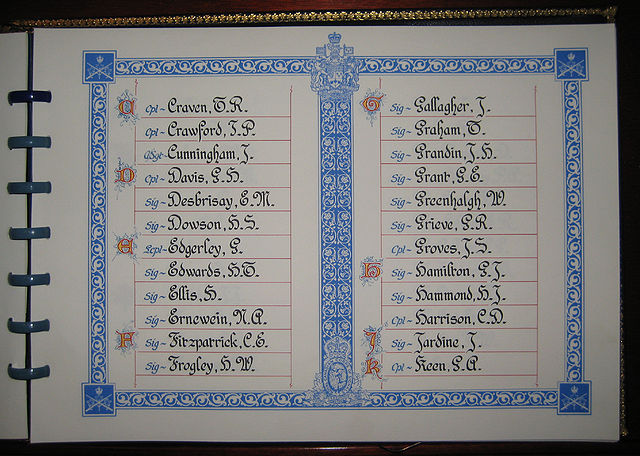 C Cpl~ Craven, T.R.
Cpl~ Crawford, J.P.
C/Sgt~ Cunningham, J.
D Cpl~ Davis, G.H.
Sig~ Desbrisay, E.M.
Sig~ Dowson, H.S.
E Lcpl~ Edgerley, G.
Sig~ Edwards, H.T.
Sig~ Ellis, H.
Sig~ Ernewein, N.A.
F Sig~ Fitzpatrick, C.E.
Sig~ Frogley, H.W.
G Sig~ Gallagher, J.
Sig~ Graham, T.
Sig~ Grandin, J.H.
Sig~ Grant, G.E.
Sig~ Greenhalgh, W.
Sig~ Grieve, G.R.
Cpl~ Groves, J.S.
H Sig~ Hamilton, G.J.
Sig~ Hammond, H.J.
Cpl~ Harrison, C.D.
J Sig~ Jardine, J.
K Cpl~ Keen, G.A.